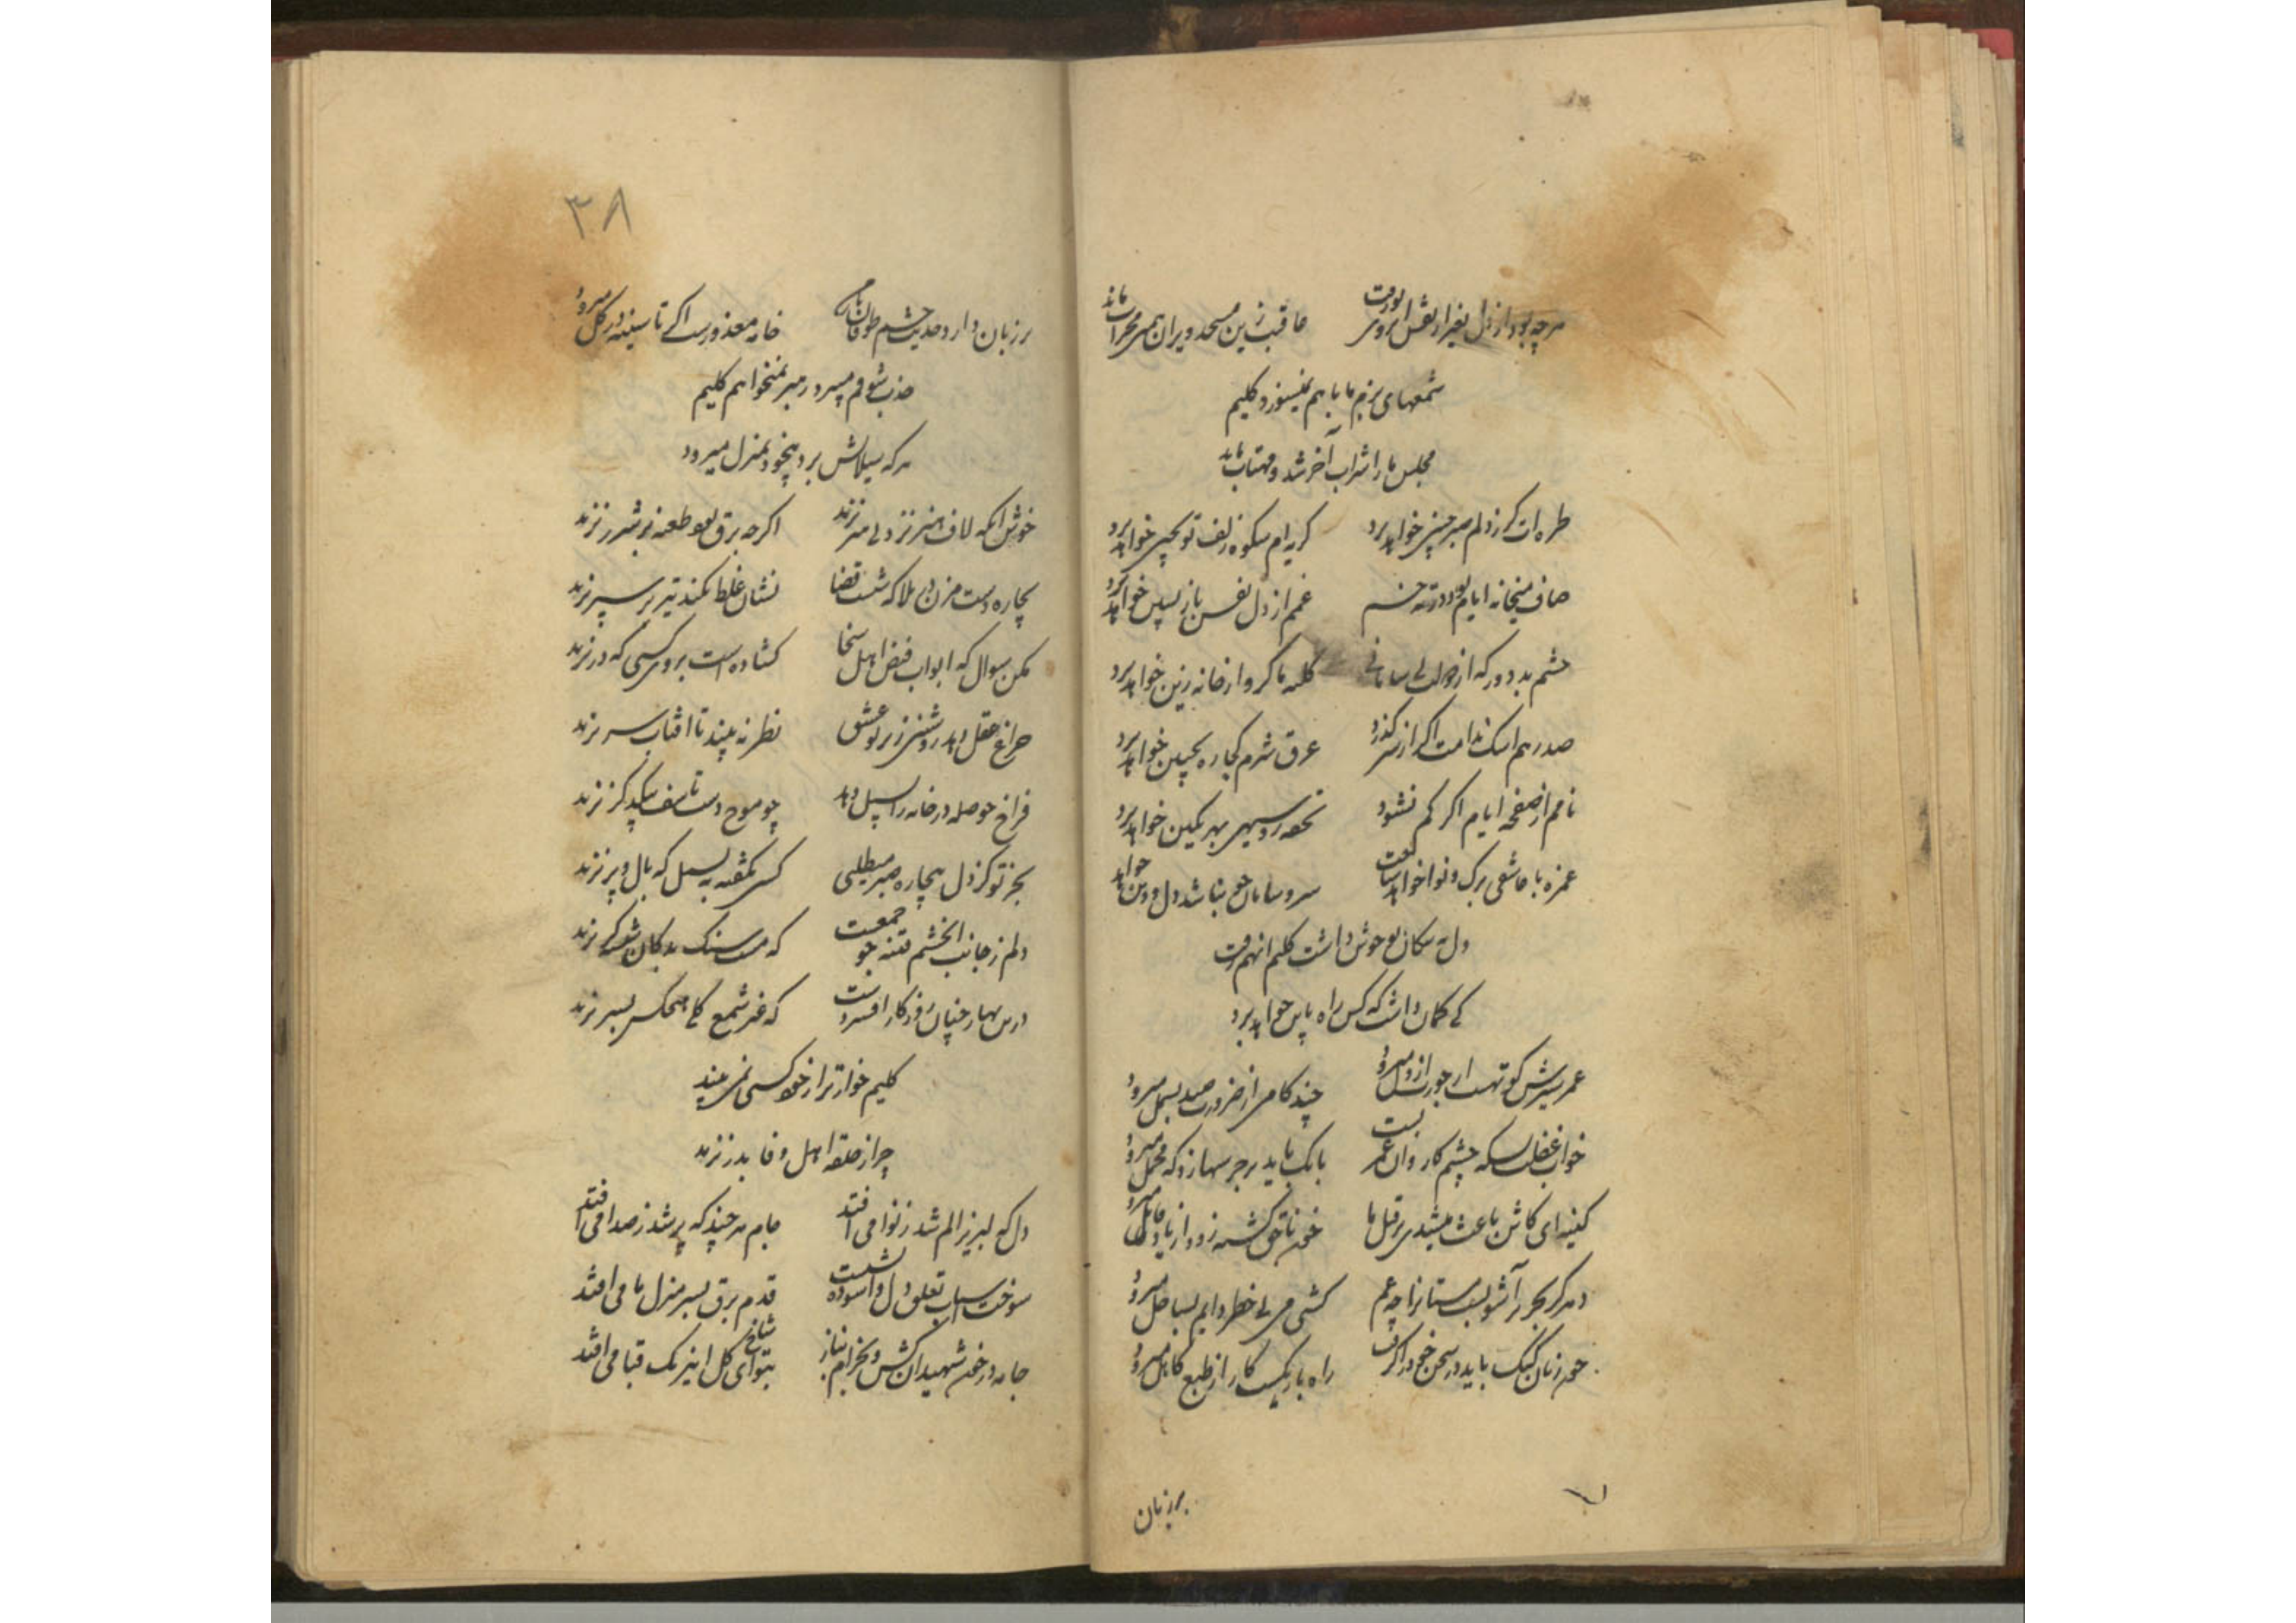 هرچه بود از دل بغیر از نقش ابروی تو رفت عاقبت زین مسجد ویران همین محراب ماند
شمعهای بزم ما با هم نمیسوزد کلیم
مجلس ما را شراب آخر شد و مهتاب ماند
طره ات کر ز دلم صبر چنین خواهد برد کریه ام شکوه زلف تو بچین خواهد برد
صاف میخانه ایام بود درد ته خم غمم از دل نفس باز پسین خواهد برد
چشم بد دور که از دولت بی سامانی
صد رهم اشک ندامت اکر از سر کذرد عرق شرم کجا ره بجبین خواهد برد
نامم از صفحه ایام اکر کم نشود تحفه روسیهی بهر نکین خواهد برد
غمزه با عاشق بی برک و نوا خواهد ساخت سر و سامان چو نباشد دل و دین خواهد
دل به پیکان تو خوش داشت کلیم آنهم رفت
کی کمان داشت که کس راه باین خواهد برد
عمر سیرش کوتهست ار چه براز دل میرود چند کامی از ضرورت صید بسمل میرود
خواب غفلت بسکه چشم کاروان عمر بست بانک باید بر جرسها زد که محمل میرود
کینه ای کاش باعث میشدی بر قتل ما خون ناحق کشته زود از یاد قاتل میرود
دهر کر بحر پر آشوبست مستانرا چه غم کشتی می بی خطر دایم بساحل میرود
چون زبان کنک باید در سخن خود را کرفت راه باریکست کار از طبع کاهل میرود
بر زبان
۳۸
بر زبان دارد حدیث چشم طوفان خانه معذورست اکر تا سینه در کل میرود
جذب شوقم میبرد رهبر نمیخواهم کلیم
هرکه سیلابش برد بیخود بمنزل میرود
خوش آنکه لاف هنر نزد بی هنر نزند اکرچه برق بود طعنه بر شرر نزند
بچاره دست مزن در بلا که شست قضا نشان غلط نکند تیر بر سپر نزند
مکن سوال که ابواب فیض اهل سخا کشاده است بروی کسی که در نزند
چراغ عقل دهد روشنی ز پرتو عشق نظر نه بیند تا آفتاب سر نزند
فراخ حوصله در خانه را بسیل دهد چو موج دست تاسف بیکدکر نزند
بجز تو کز دل بیچاره صبر میطلبی کسی نکفته به بسمل که بال و پر نزند
دلم ز جانب آن چشم فتنه جو جمعست که مست سنک بدکان شیشه کر نزند
درین بهار چنان روزکار افسردست که غیر شمع کلی هیچکس بسر نزند
کلیم خوارتر از خود کسی نمی بیند
چرا ز حلقه اهل وفا بدر نزند
دل که لبریز الم شد ز نوا می افتد جام هر چند که پر شد ز صدا می افتد
سوخت اسباب تعلق دل و آسوده نشست قدم برق بسر منزل ما می افتد
جامه در خون شهیدان کش و بخرام بناز بتو ای شاخ کل این رنک قبا می افتد